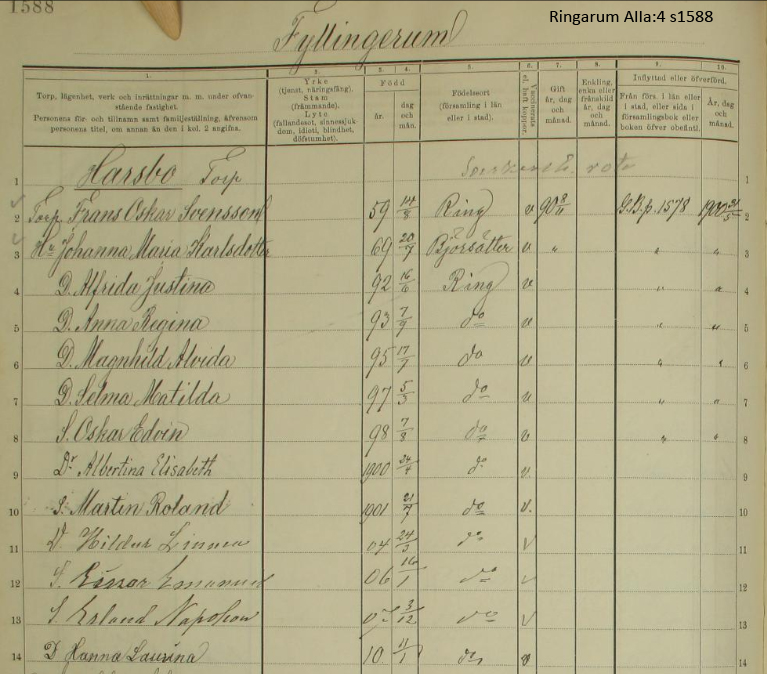 1588
Ringarum Alla:4 s1588
Fyllingerum
1. 2. 3. 4. 5. 6. 7. 8. 9. 10.
Torp, lägenhet, verk och inrättningar m. m. under ofvanstående fastighet.
Personens för- och tillnamn samt familjeställning, äfvensom personens titel, om annan än den i kol. 2 angifna.
Yrke (tjenst, näringsfång). Stam (främmande). Lyte (fallandesot, sinnessjukdom, idioti, blindhet, döfstumhet).
Född
år. dag och mån.
Födelseort (församling i län eller i stad).
Vaccinerats el. haft koppor.
Gift år, dag och månad.
Enkling, enka eller frånskild år, dag och månad.
Inflyttad eller öfverförd.
Från förs. i län eller i stad, eller sida i församlingsbok eller boken öfver obefintl.
År, dag och månad.
1 Harsbo Torp rote 1
2 Torp. Frans Oskar Svensson 59 14/8 Ring v 90 G.B.p. 1578 1900 2
3 Hu Johanna Maria Karlsdotter 69 20/7 Björsäter v " " " 3
4 D. Alfrida Justina 92 16/6 Ring v " " 4
5 D. Anna Regina 93 7/9 do v " " 5
6 D. Magnhild Alvida 95 17/7 do v " " 6
7 D. Selma Matilda 97 5/3 do v " " 7
8 S. Oskar Edvin 98 7/8 do v " " 8
9 Dr Albertina Elisabeth 1900 24/4 do v 9
10 S. Martin Roland 1901 21/7 do v. 10
11 D. Hildur Linnea 04 24/3 do v 11
12 S. Einar Emanuel 06 16/1 do v 12
13 S. Erland Napoleon 07 3/12 do v 13
14 D Hanna Laurina 10 11/1 do v 14